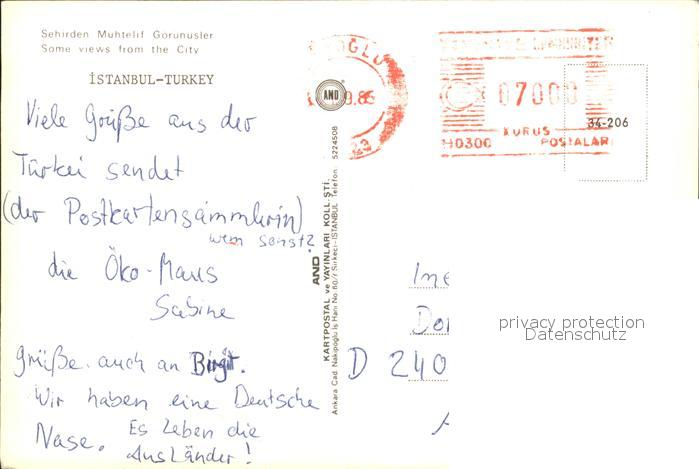 Sehirden Muhtelif Gorunusler
Some views from the City
İSTANBUL-TURKEY
Viele Grüße aus der
Türkei sendet
(der Postkartensammlerin)
wem sonst?
die Öko-Maus
Sabine
Grüße auch an Birgit.
Wir haben eine Deutsche
Nase. Es leben die
Ausländer!
AND
KARTPOSTAL ve YAYINLARI KOLL. ŞTİ.
Ankara Cad. Nakipoğlu İş Hanı No. 60/7 Sirkeci-İSTANBUL Telefon: 5224508
AND
9.85
07000
KURUS
H0300 POSTALARI
34-206
Ine
Dor
D 240
privacy protection
Datenschutz